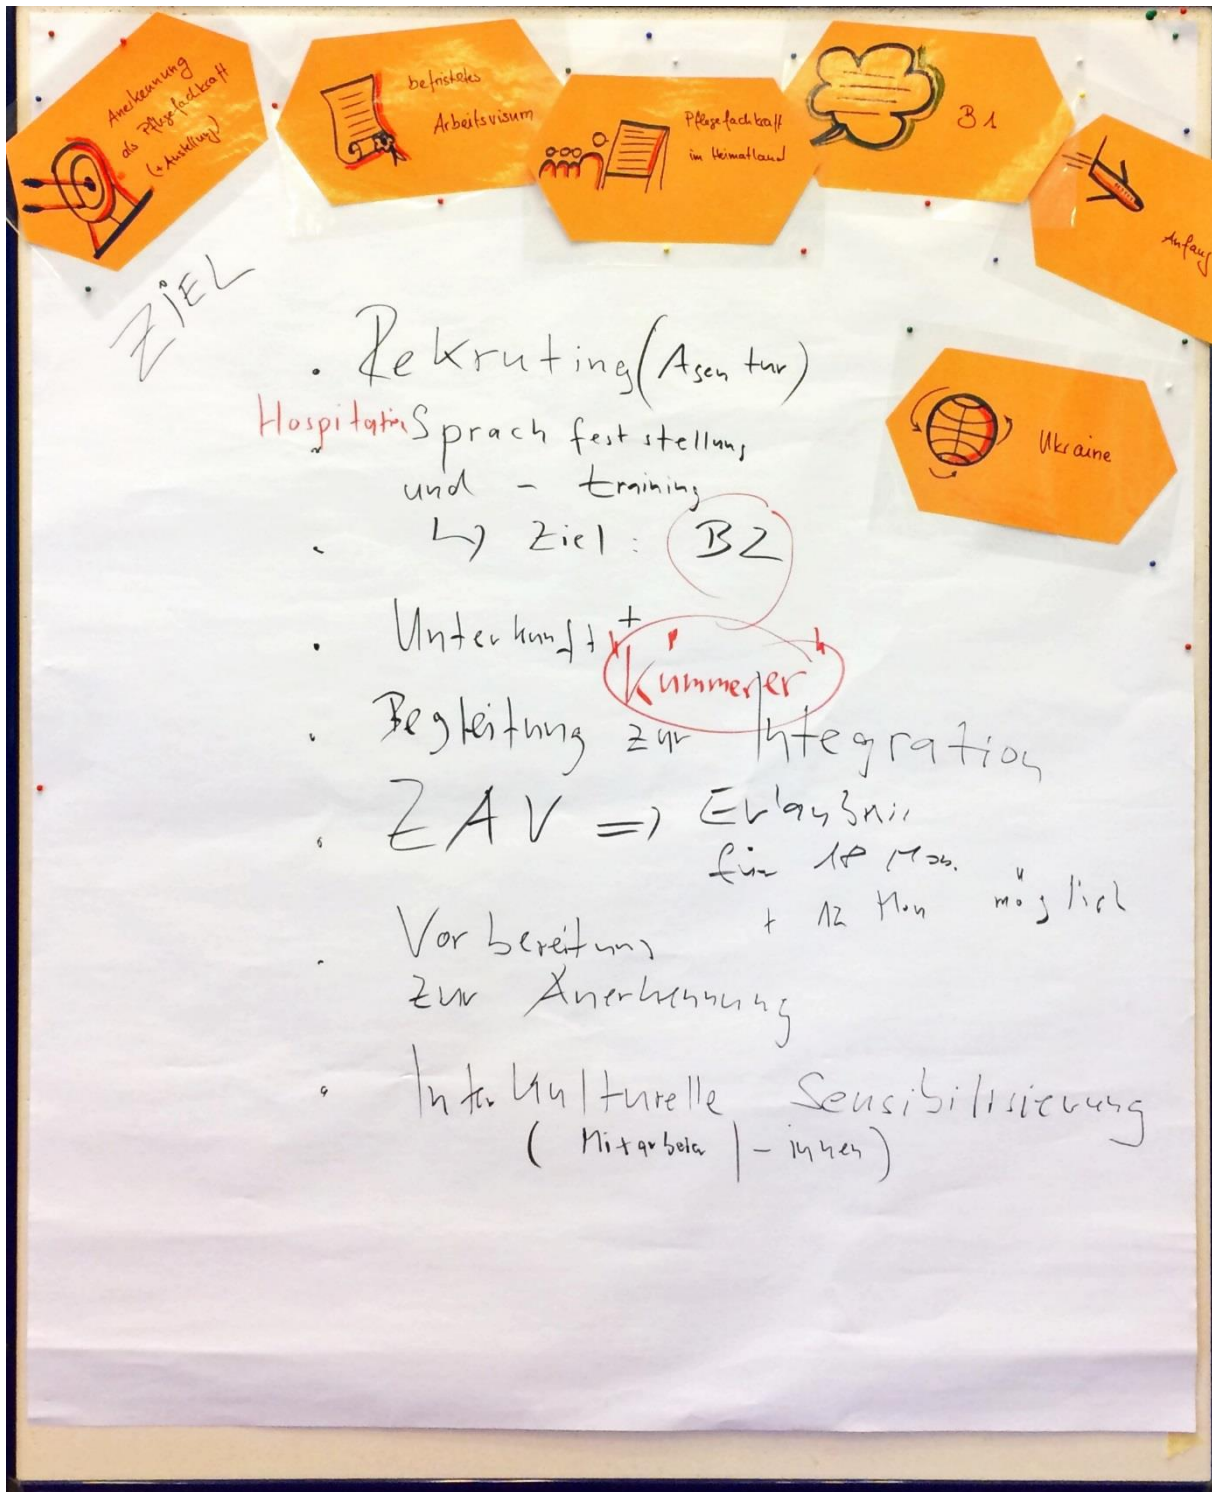 Anerkennung
als Pflegefachkraft
(+ Anstellung)
befristetes
Arbeitsvisum
Pflegefachkraft
im Heimatland
B1
Anfang
Ukraine
ZIEL
• Rekruting (Agentur)
Hospitation
• Sprachfeststellung
und - training
• ↳ Ziel: B2
• Unterkunft +
Kümmerer
• Begleitung zur Integration
• ZAV => Erlaubnis
für 18 Mon.
+ 12 Mon möglich
• Vorbereitung
zur Anerkennung
• Interkulturelle Sensibilisierung
(Mitarbeiter | - innen)